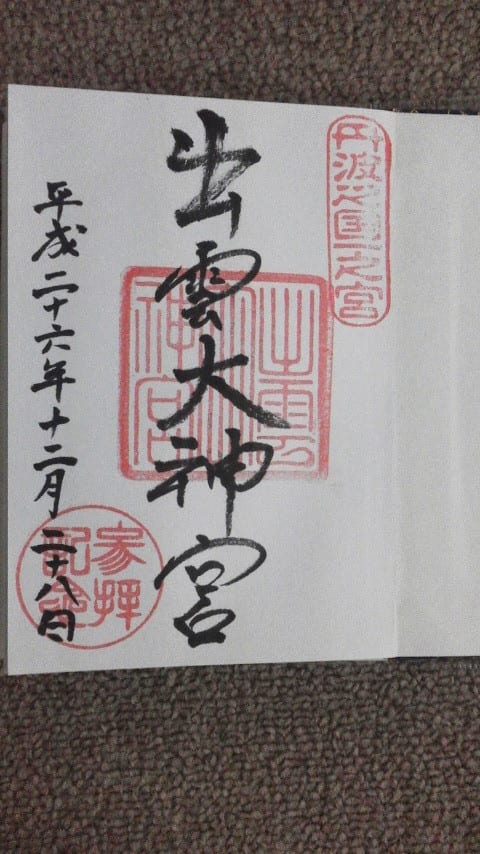 丹波之國一之宮
出雲大神宮
出雲大神宮
平成二十六年十二月二十八日
参拝記念